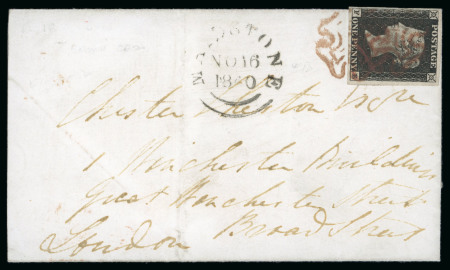 MAIDSTONE
NO 16
1840
POSTAGE
ONE PENNY
Chester Esqre
1 Winchester Buildings
Great Winchester Street
Broad Street
London